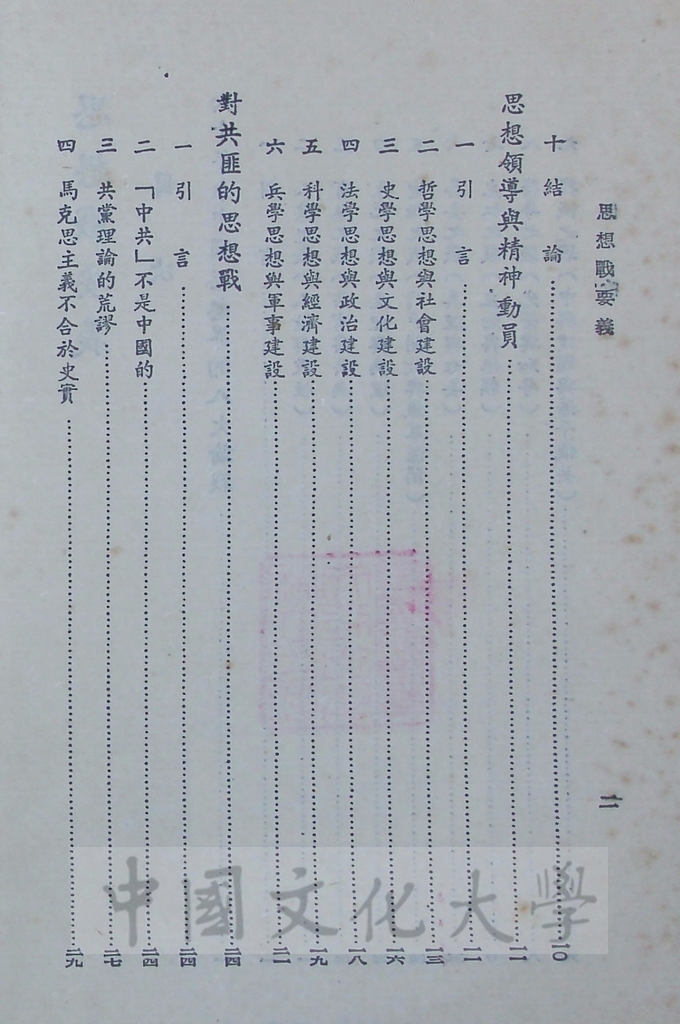 思想戰要義
二
十 結論……一〇
思想領導與精神動員……一一
一 引言……一一
二 哲學思想與社會建設……一三
三 史學思想與文化建設……一六
四 法學思想與政治建設……一八
五 科學思想與經濟建設……一九
六 兵學思想與軍事建設……二一
對共匪的思想戰……二四
一 引言……二四
二 「中共」不是中國的……二四
三 共黨理論的荒謬……二七
四 馬克思主義不合於史實……二九
中國文化大學